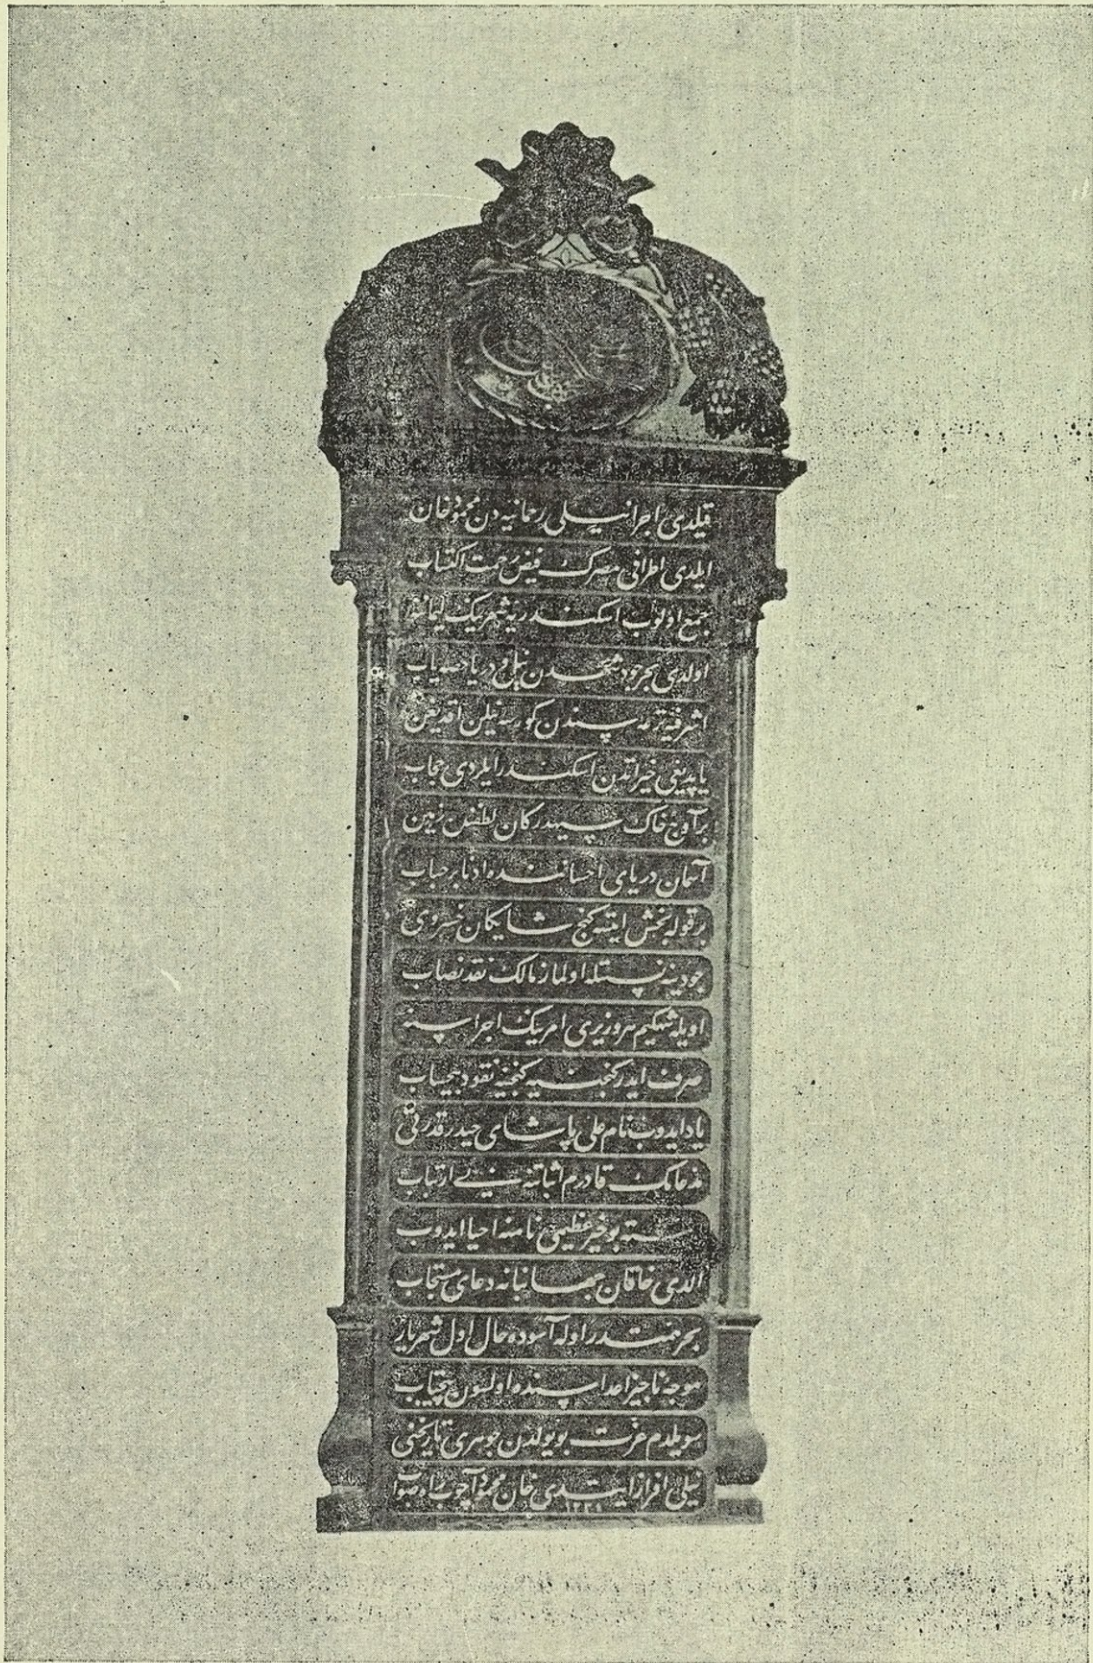 قیلدی اجرا نیلی رحمانیه دن محمود خان
ایلدی اطرافی مصرك فیض رحمت اكتساب
جمع اولوب اسكندریه شهرینك لیماننده
اولدی بحر جود بیحد دن نیل و دریا حصه یاب
اشرفیه ترعه سندن كورسه نیلن اقدیغن
یاپدیغی خیراتدن اسكندر ایلردی حجاب
بر آوج خاك سیهدر كان لطفنده زمین
آسمان دریای احساننده ادنا بر حباب
بر قوله بخش ایتسه كنج شایكان خسروی
جودینه نسبتله اولماز مالك نقد نصاب
اویله شهكیم هر وزیری امرینك اجراسنه
صرف ایدر كنجینه كنجینه نقود بیحساب
یاد ایدوب نام علی پاشای حیدر قدرتی
مدعانك قادرم اثباتنه بی ارتیاب
بو خیر عظیمی نامنه احیا ایدوب
آلدی خاقان جهانبانه دعای مستجاب
بحر همتدر اوله آسوده حال اول شهریار
موجه ناچیز اعداسنده اولسون پیچتاب
سویلدم عزت بو یولدن جوهری تاریخنی
نیلی افراز ایتدی خان محمود آچوب راه صواب